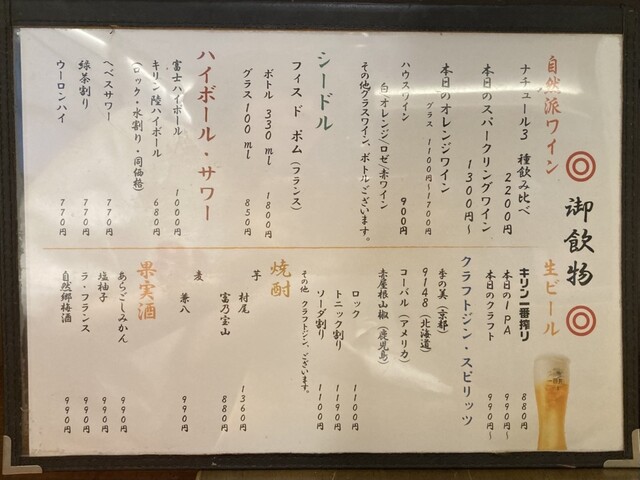 ◎ 御飲物 ◎
自然派ワイン
ナチュール3種飲み比べ
2200円
本日のスパークリングワイン
1300円～
本日のオレンジワイン
グラス 1100円～1700円
ハウスワイン 900円
白/オレンジ/ロゼ/赤ワイン
その他グラスワイン、ボトルございます。
シードル
フィス ド ボム (フランス)
ボトル 330ml 1800円
グラス 100ml 850円
ハイボール・サワー
富士ハイボール 1000円
キリン 陸ハイボール 680円
(ロック・水割り・同価格)
ヘベスサワー 770円
緑茶割り 770円
ウーロンハイ 770円
生ビール
キリン一番搾り 880円
本日のIPA 990円～
本日のクラフト 990円～
クラフトジン・スピリッツ
季の美 (京都)
9148 (北海道)
コーバル (アメリカ)
赤屋根山椒 (鹿児島)
ロック 1100円
トニック割り 1190円
ソーダ割り 1100円
その他 クラフトジン、ございます。
焼酎
芋
村尾 1360円
富乃宝山 880円
麦
兼八 990円
果実酒
あらごしみかん 990円
塩柚子 990円
ラ・フランス 990円
自然郷梅酒 990円